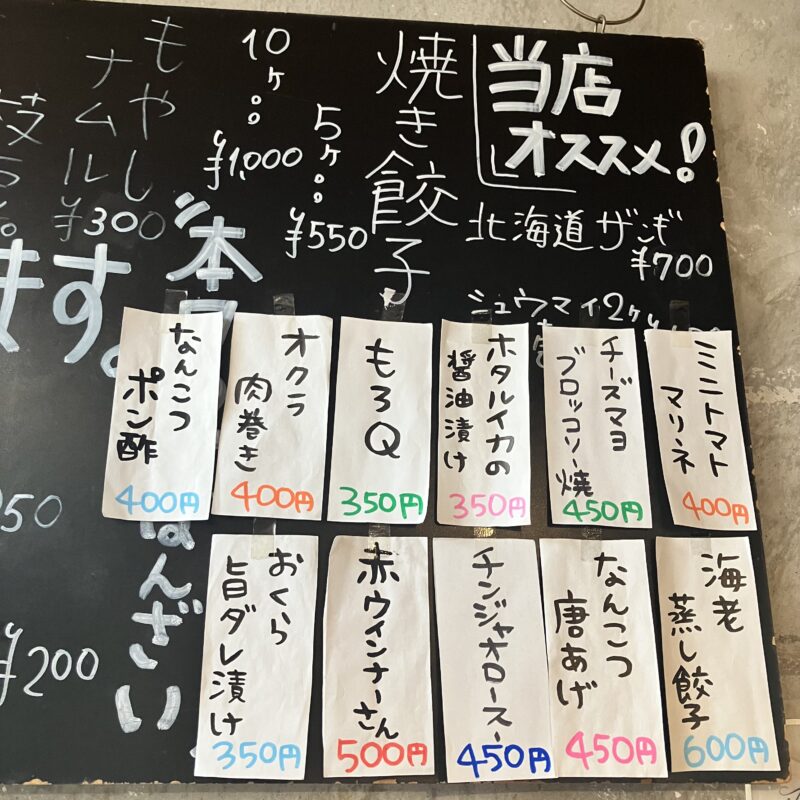 当店
オススメ!
北海道ザンギ
¥700
シュウマイ2ヶ
焼き餃子
5ヶ。。
¥550
10ヶ。。
¥1,000
もやし
ナムル
¥300
本
ます。
ばんざい
50
¥200
ミニトマト
マリーネ
400円
チーズマヨ
ブロッコリー焼
450円
ホタルイカの
醤油漬け
350円
もろQ
350円
オクラ
肉巻き
400円
なんこつ
ポン酢
400円
海老
蒸し餃子
600円
なんこつ
唐あげ
450円
チンジャオロース
450円
赤ウインナーさん
500円
おくら
旨ダレ漬け
350円